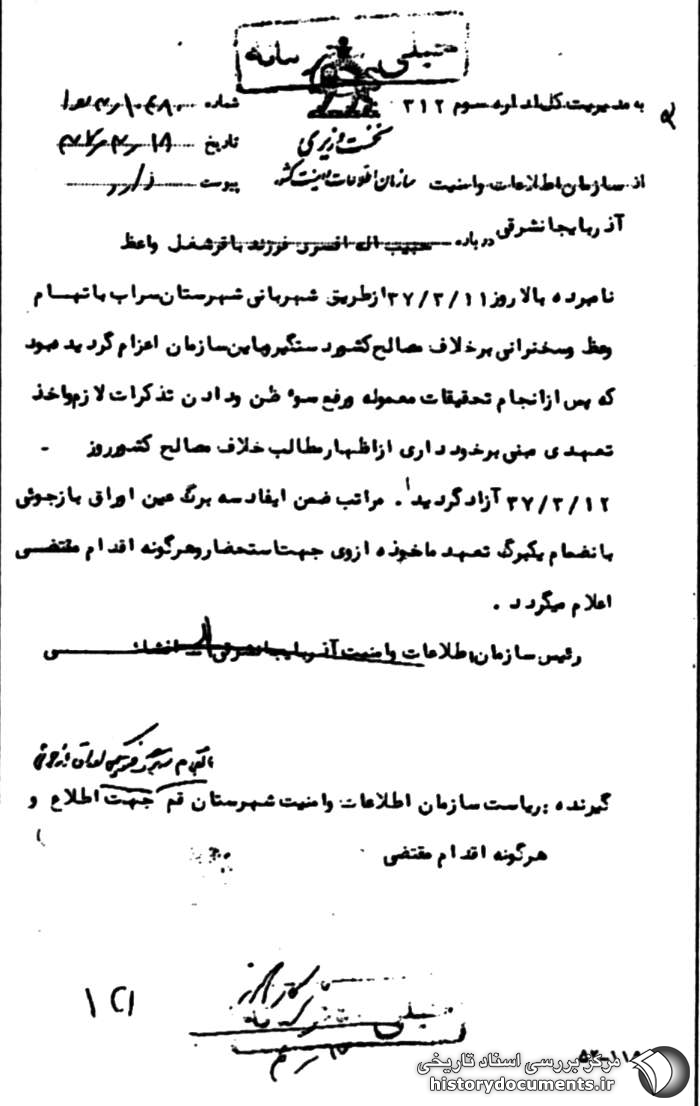 خیلی محرمانه
به مدیریت کل اداره سوم ۳۱۲
شماره
نخست وزیری
تاریخ
از سازمان اطلاعات و امنیت
سازمان اطلاعات و امنیت کشور
پیوست دارد
آذربایجانشرقی درباره حبیب اله افسری فرزند باقر شغل واعظ
نامبرده بالا روز ۳۷/۳/۱۱ ازطریق شهربانی شهرستان سراب باتهام
وعظ وسخنرانی برخلاف مصالح کشور دستگیر وباین سازمان اعزام گردیده بود
که پس ازانجام تحقیقات معموله ورفع سوء ظن ودادن تذکرات لازم واخذ
تعهدی مبنی برخودداری ازاظهارمطالب خلاف مصالح کشورروز -
۳۷/۳/۱۲ آزادگردید. مراتب ضمن ایفادسه برگ عین اوراق بازجوئی
بانضمام یکبرگ تعهد ماخوذه ازوی جهت استحضار وهرگونه اقدام مقتضی
اعلام میگردد.
رئیس سازمان اطلاعات وامنیت آذربایجانشرقی
گیرنده: ریاست سازمان اطلاعات وامنیت شهرستان قم جهت اطلاع و
هرگونه اقدام مقتضی
خیلی محرمانه
۵۲-۱۱۵
مرکز بررسی اسناد تاریخی
historydocuments.ir